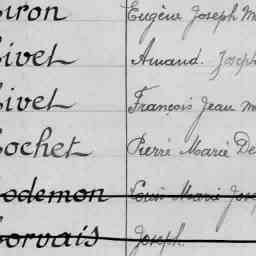 iron Eugène Joseph M
ivet Amand. Joseph
ivet François Jean M
ochet Pierre Marie De
odemon Louis Marie Jose
orvais Joseph